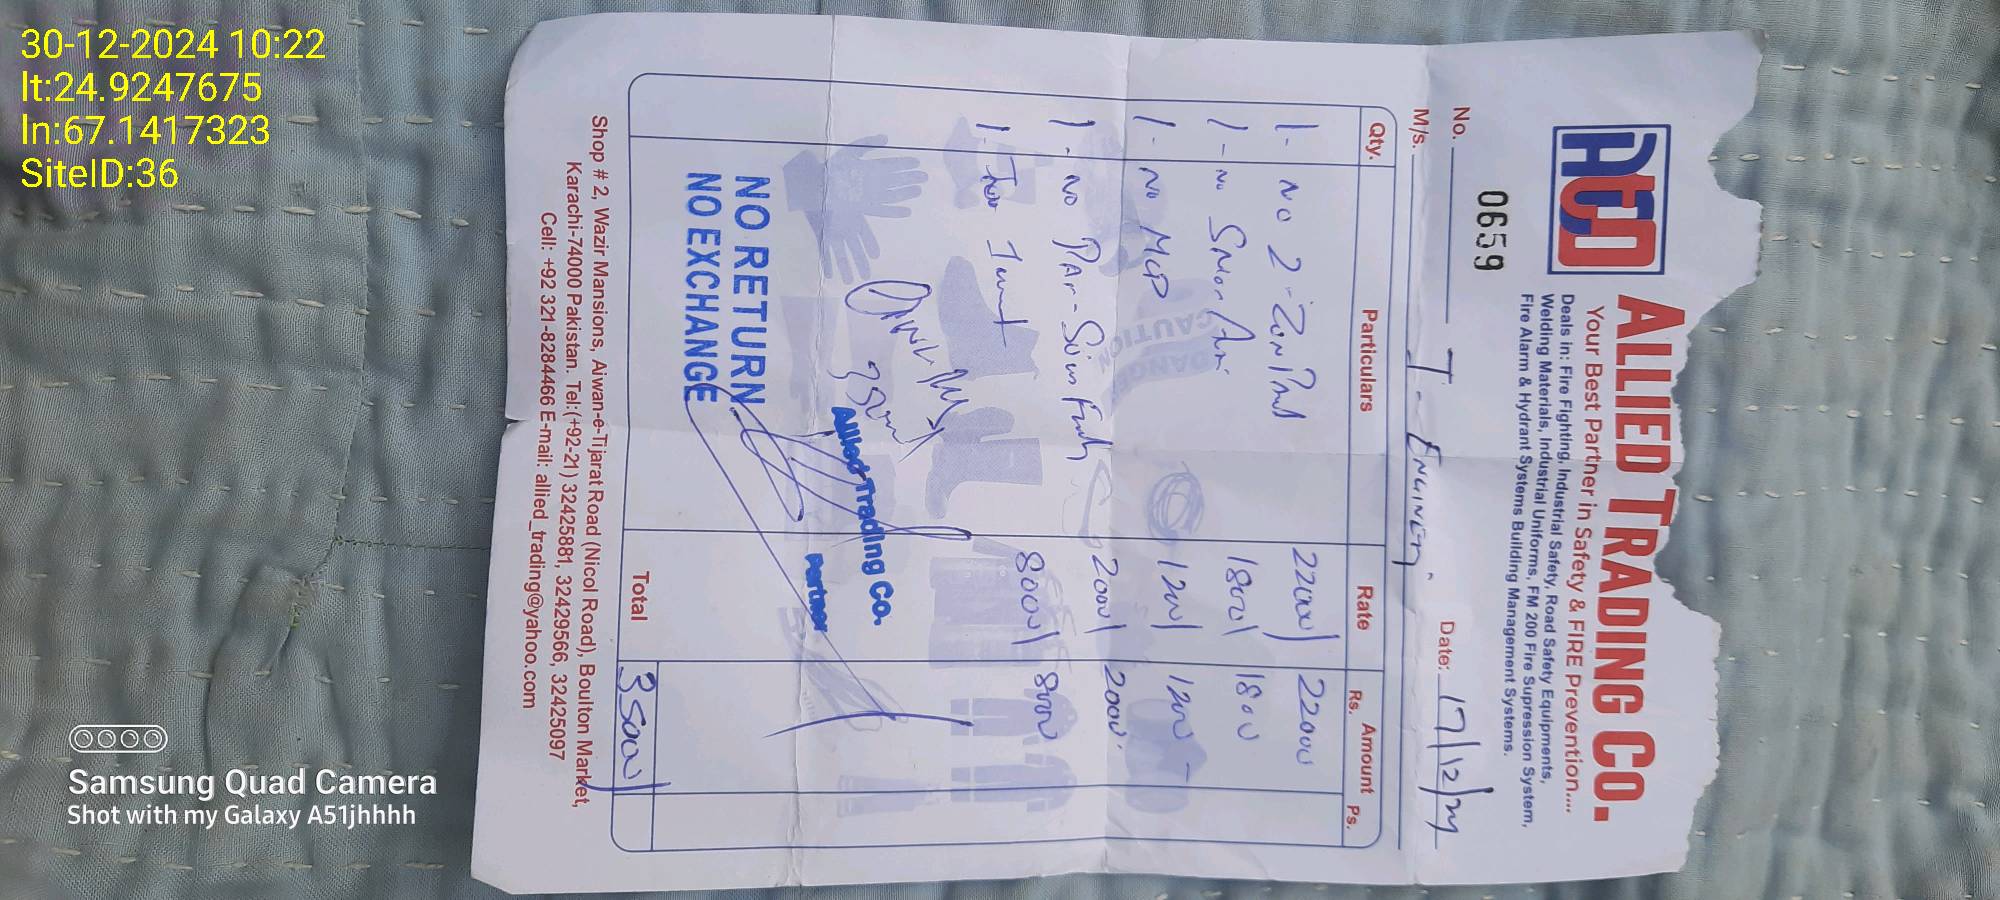 30-12-2024 10:22
lt:24.9247675
ln:67.1417323
SiteID:36
ATCO
ALLIED TRADING CO.
Your Best Partner in Safety & FIRE Prevention....
Deals in: Fire Fighting, Industrial Safety, Road Safety Equipments,
Welding Materials, Industrial Uniforms, FM 200 Fire Supression System,
Fire Alarm & Hydrant Systems Building Management Systems.
0659
No. Date: 17/12/24
M/s. J-
Qty. Particulars Rate Amount
Rs. Ps.
1- NO 2- 22000/ 22000
1- NO 1800/ 1800
1- NO MCP 1200/ 1200 -
1- NO 2000/ 2000.
1- 8000/ 8000
CAUTION
DANGER
Allied Trading Co.
Partner
NO RETURN
NO EXCHANGE
Total 35000/
Shop # 2, Wazir Mansions, Aiwan-e-Tijarat Road (Nicol Road), Boulton Market,
Karachi-74000 Pakistan. Tel:(+92-21) 32425881, 32429566, 32425097
Cell: +92 321-8284466 E-mail: allied_trading@yahoo.com
Samsung Quad Camera
Shot with my Galaxy A51jhhhh